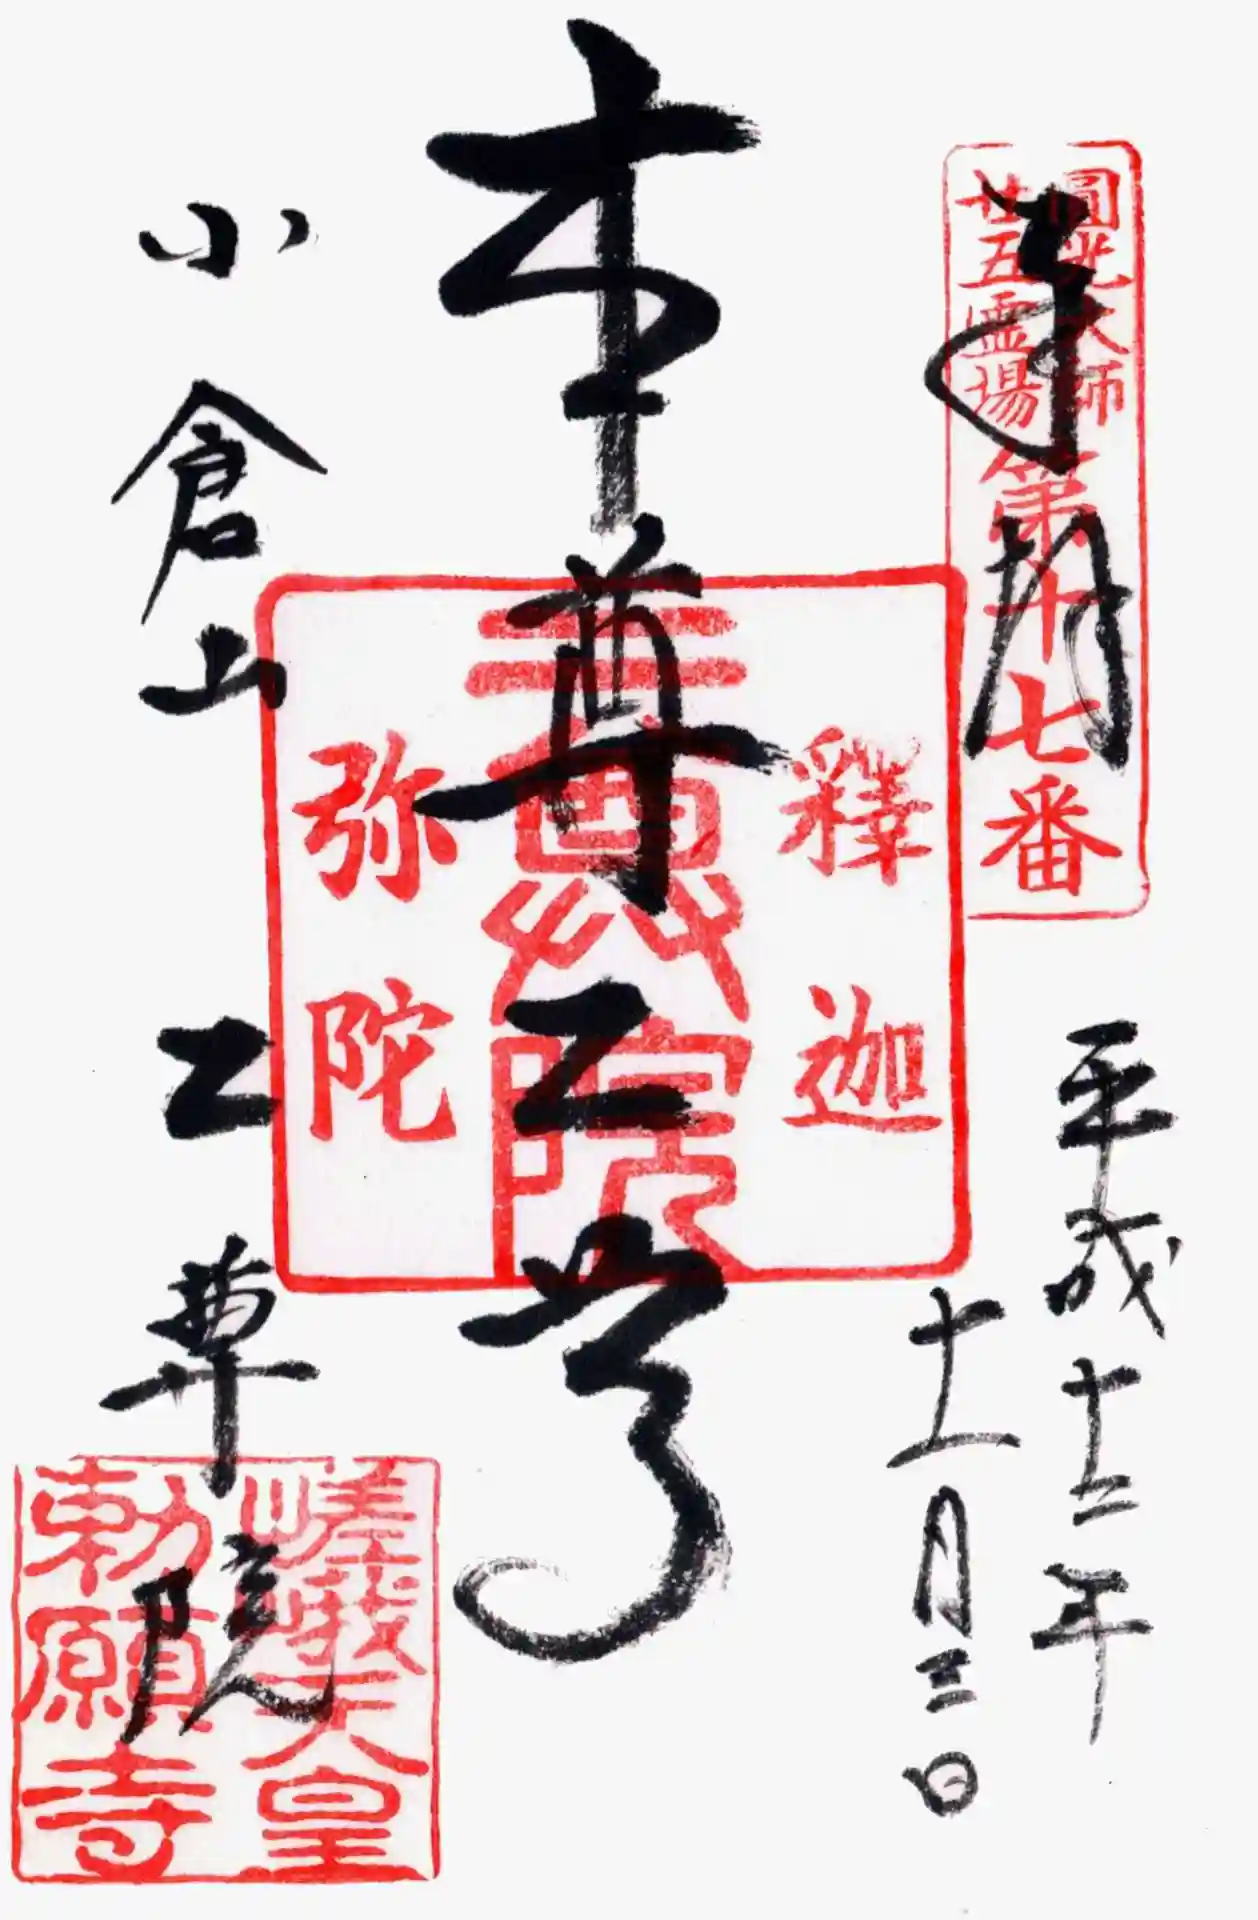 圓光大師
廿五霊場
第十七番
平成十二年
十一月三日
本尊二尊
釋迦
二尊院
弥陀
小倉山
二尊院
嵯峨天皇
勅願寺